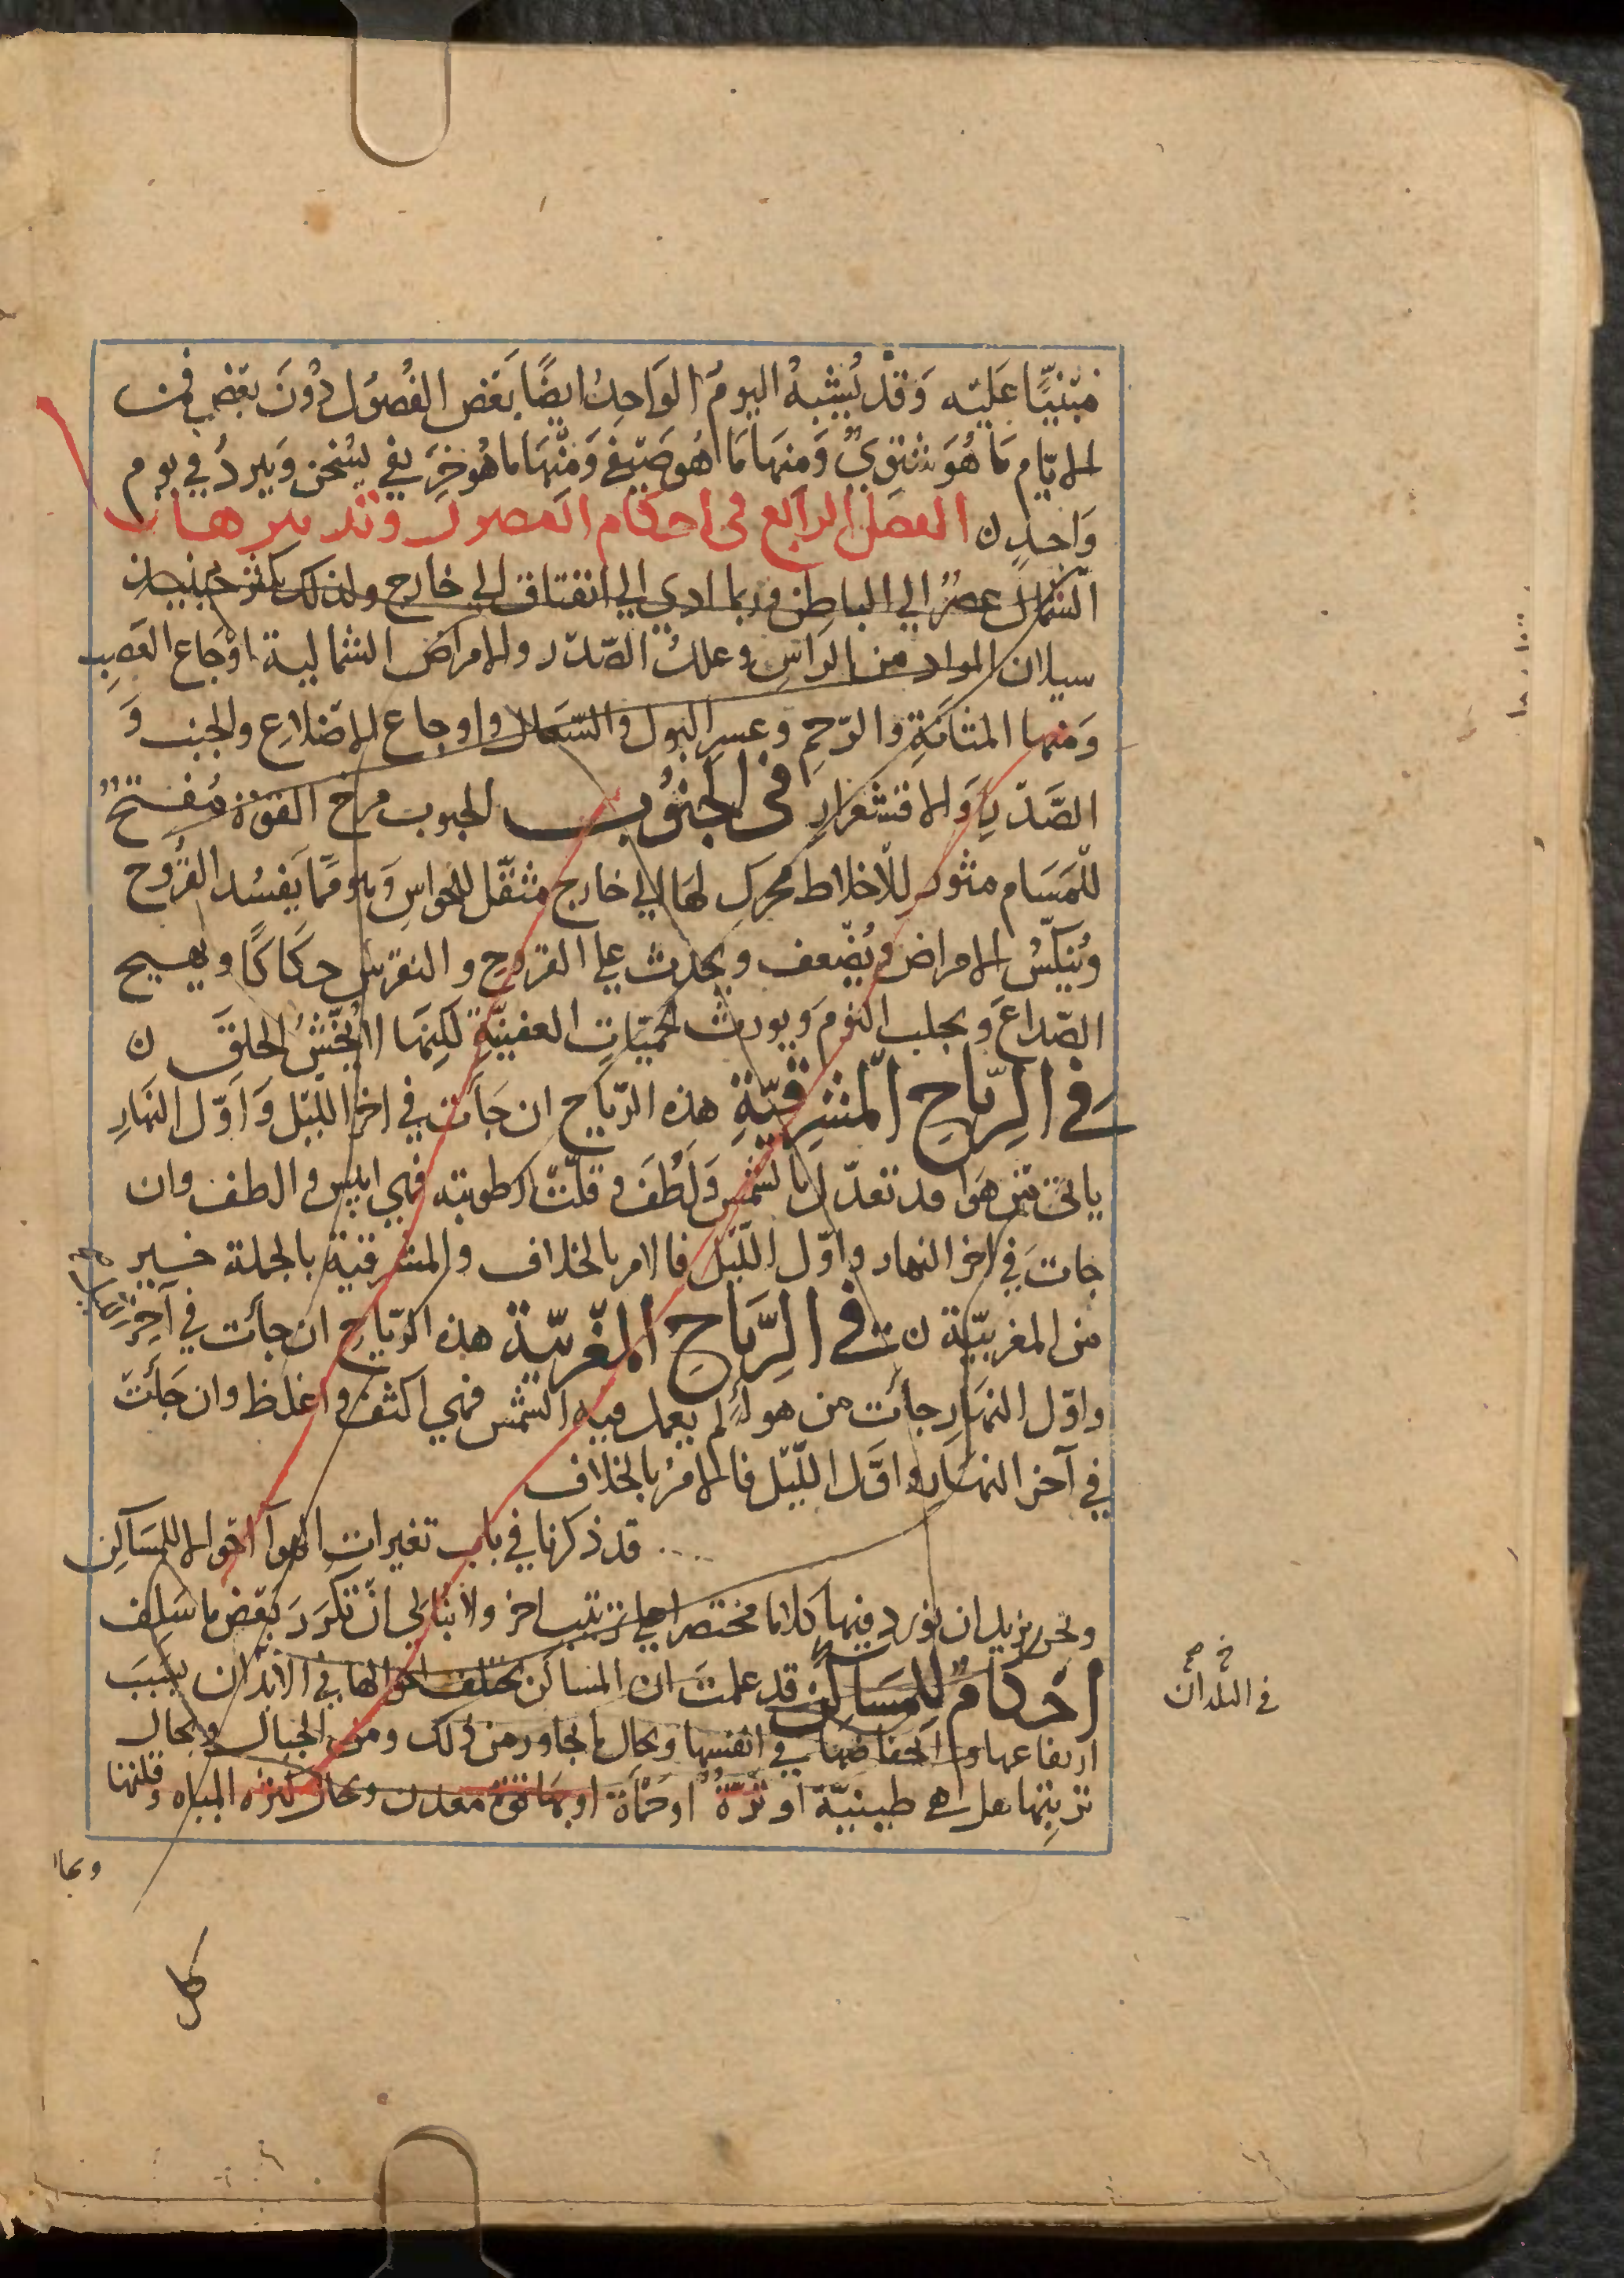 مبنيًّا عَليه وَقد يُشبهُ اليومُ الوَاحدُ ايضًا بَعَض الفُصوُل دُوُنَ بعَضٍ فمن
الايّام مَا هُوَ شتوِيٌّ وَمنهَا مَا هُو صَيّفي وَمنّهَا ما هُو خرَيفي يسُخن وَيبردُ في يوم
وَاحدٍ ن الفصَل الرابع فى احكام الفصول وتدبيرهان
الشمال عصرٌ الي الباطِن وربما ادي الي انفتاق الي خارج ولذلك يكثر حينيذٍ
سيلان المواد من الراسِ وعللُ الصّدر والامراض الشمالية اوَجَاع العَصِب
وَمنها المثانَةِ والرّحِم وعسر البول والسّعَال واوجاع الاضّلاعِ والجنب وَ
الصَّدّرِ وَالاقشعرَارِ في الجنوُب الجبوب مرخ القوّة مُفتحٌ
للمَسَام مثور للاخلاط محرك لهَا الي خارج مثقّل للحواسِ وَهو ممّا يَفسُد القرُوح
وُينكّسُ الامراض ويُضّعف ويحدث علي القروح والنقرس حكَاكًا ويهيج
الصّداعَ ويجلب النومَ وَيورث الحميّاتِ العفنيّة لكنِهَا لا يُخّشنُ الحلقَ ن
في الِرّياحِ المشرِقيّةِ هذه الرّيَاح ان جَأت في اخر اللّيل وَاوّل النهَارِ
ياتى من هَوا قد تعدّل بالشمّس وَلَطُفَ وقلّت رطوبته فهي ايبس والطف وان
جات في اخر النهار واوّل اللّيّل فالامر بالخلاف والمشرقية بالجملة خير
من المغربيّة ن في الرَّيَاحِ المغّربيّة هذه الرّيَاح ان جأت في آخِر الليل
واوّل النهَار جأت من هواءٍ لم يعمل فيه الشمّس فهي اكثف واغلظ وان جَأت
في آخر النهَارِ واوَّل اللّيّل فالامرُ بالخلاف
قد ذكرنا في باب تغيرات الهوآ احَوالا للمسَاكِن
ونحن نريد ان نورد فيهَا كلاما مختصرا علي ترتيب اخر ولا نبُالي انّ نكرَر بَعّض ما سَلف
احكامٌ للمسَاكنِ قد علمتَ ان المساكن يختلف احوالها في الابّدان بسَببَ
ارتفاعها وانخفاضهَا في انفسِها وبحال ما يجاور من ذلك ومن الجبال وبحال
تربتِها هل هي طينيّة او نَزّةٌ اوحَمَأة او بهَا قوّة معدن وبحال كثرة المياه وقلتها
في البلدان
وبحا